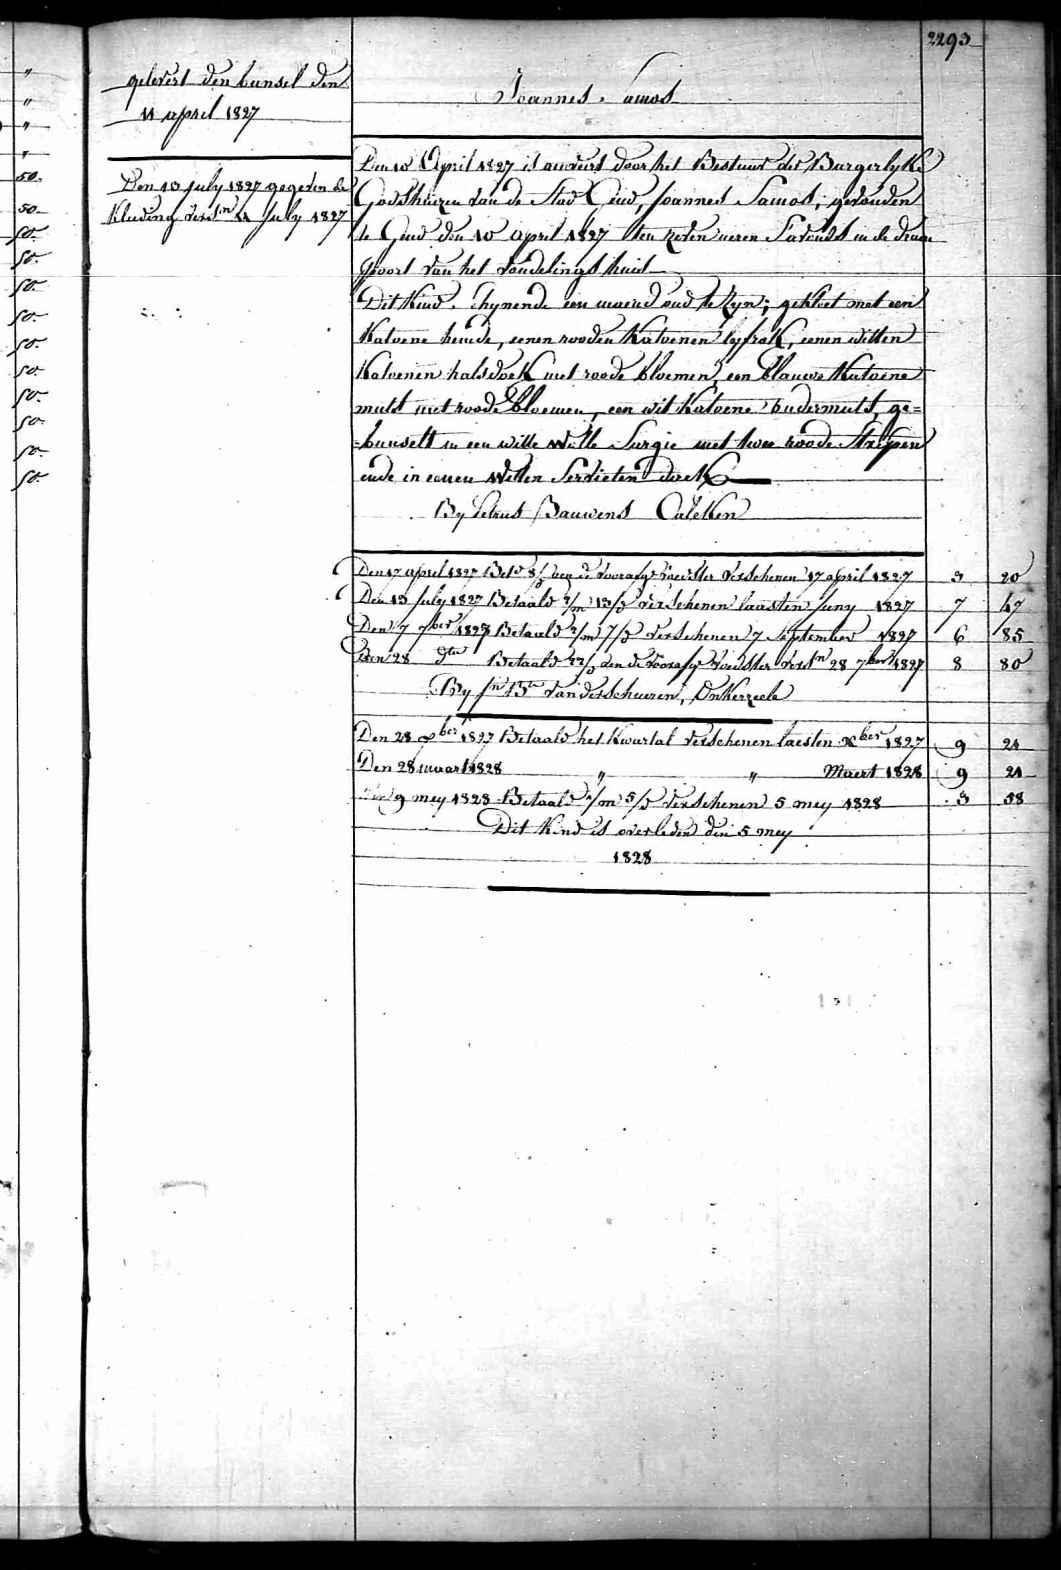 2293
"
"
"
"
50.
50
50.
50.
50.
50.
50.
50.
50.
50.
50.
50
gelevert den bunsel den
11 april 1827
Den 13 july 1827 gegeven de
kleeding verstn 11 july 1827
Joannes Samos
Den 10 April 1827 is anveirt door het Bestuur der Burgerlyke
Godshuizen van de Stad Gend, Joannes Samos, gevonden
te Gend den 10 april 1827 ten zeven uren s'avonds in de
van het vondelingshuis
Dit kind schynende een maend oud te zyn; gekleet met een
katoene hemde, eenen rooden katoenen lyfrok, eenen witten
katoenen halsdoek met roode bloemen, een blauwe katoene
muts met roode bloemen, een wit katoene ondermuts, ge=
=bunselt in een witte wolle Sargie met twee roode Strepen
ende in eenen witten Servieten doek
By Petrus Bauwens Calcken
Den 17 april 1827 Bet. 8/d aen de voorafge voedster verschenen 17 april 1827 3 20
Den 13 july 1827 Betaald 2/m 13/d verschenen laasten juny 1827 7 47
Den 7 7ber 1827 Betaald 2/m 7/d verschenen 7 September 1827 6 85
Den 28 dto Betaald 22/d aen de voorafge voedster verstn 28 7ber 1827 8 80
By jn Bte Vanderschueren, Onkerzeele
Den 28 xber 1827 Betaald het kwartal verschenen laesten xber 1827 9 21
Den 28 maart 1828 " " Maert 1828 9 21
Den 9 mey 1828 Betaald 1/m 5/d verschenen 5 mey 1828 3 58
Dit kind is overleden den 5 mey
1828